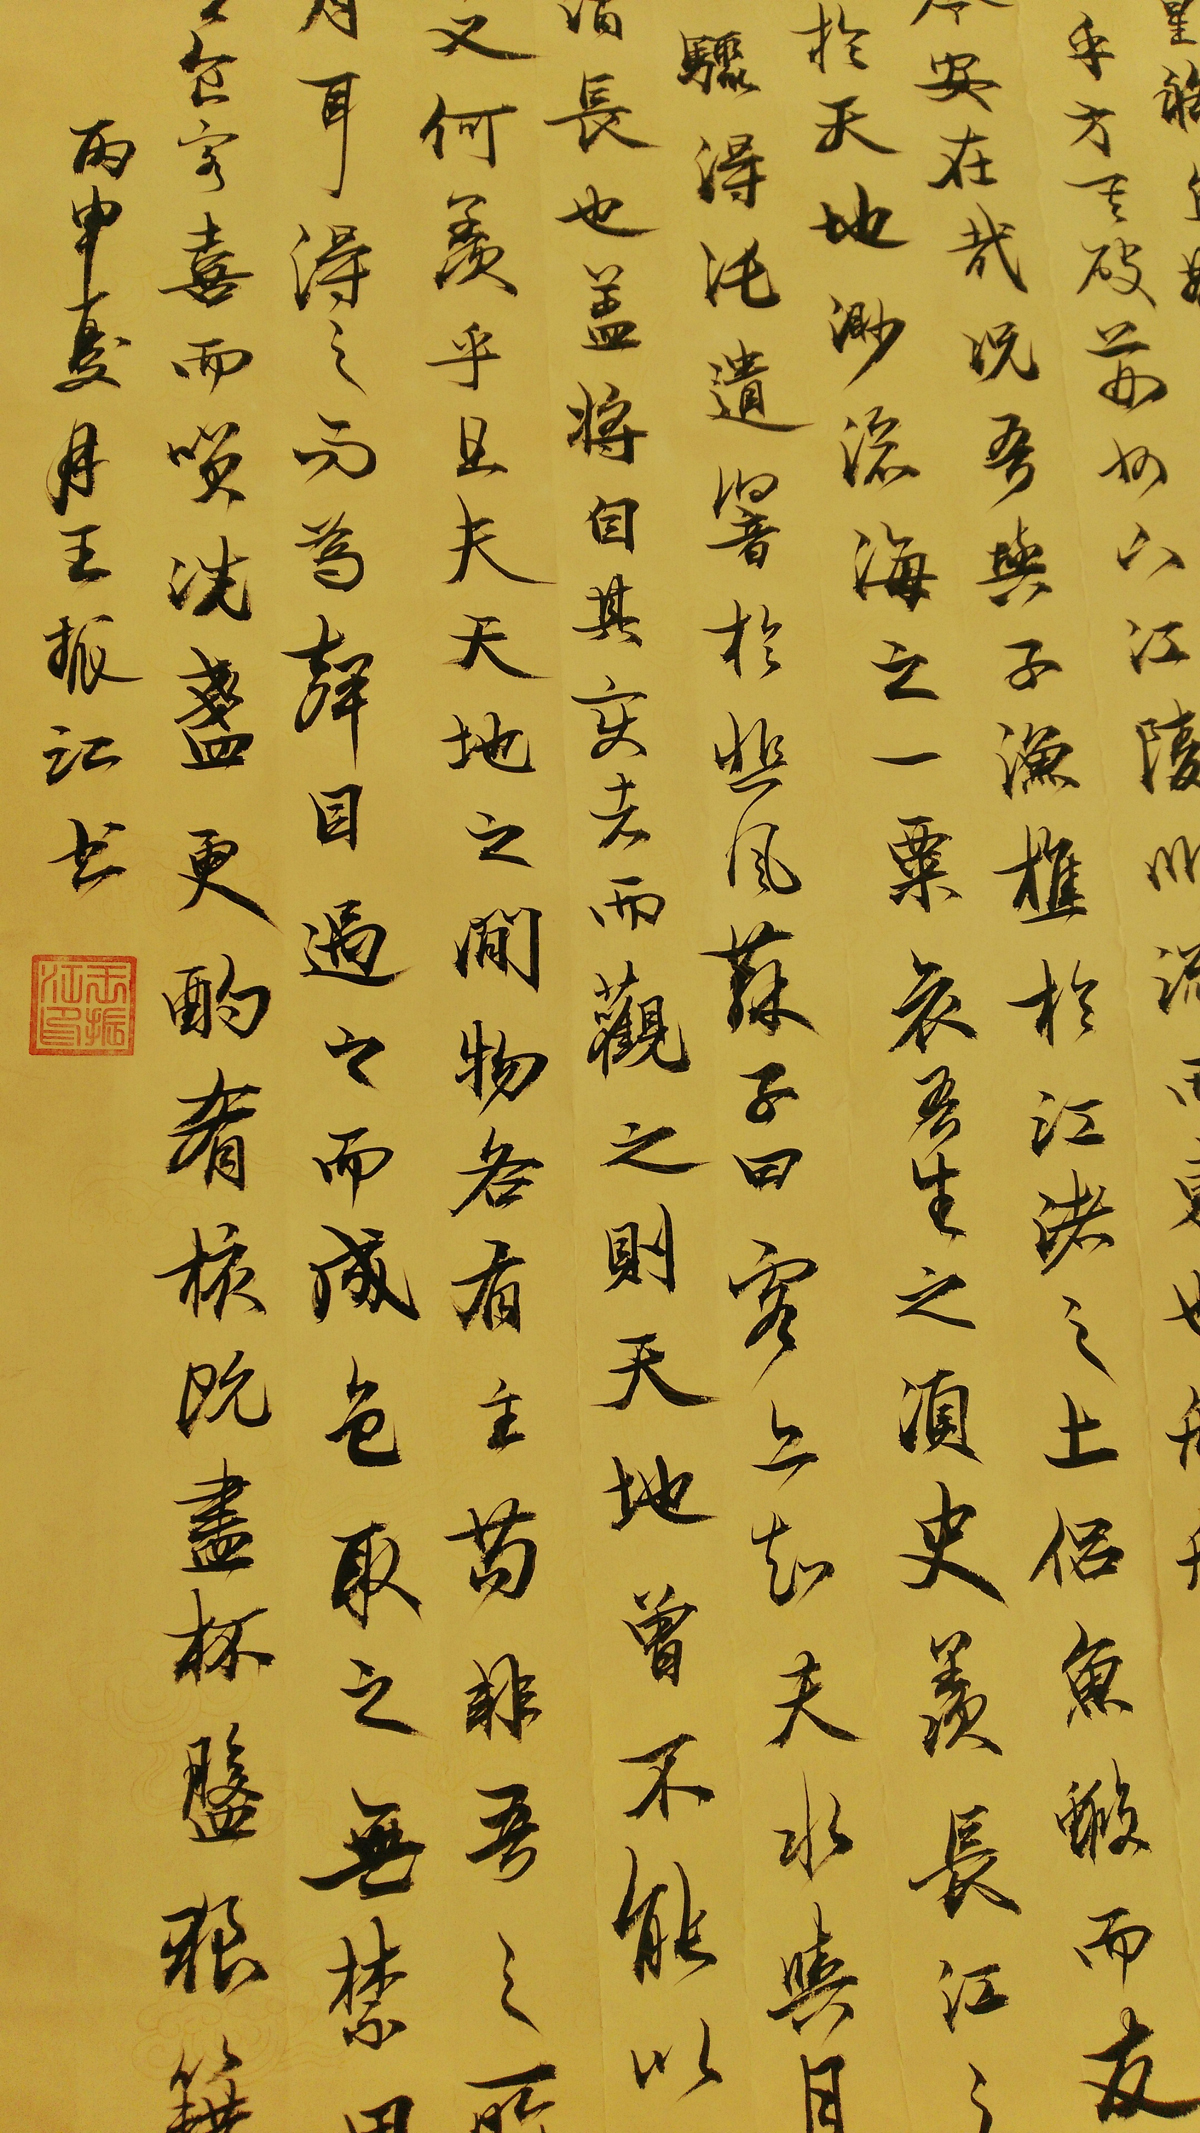 而東也
乎方其破荊州下江陵順流
安在哉況吾與子漁樵於江渚之上侶魚鰕而友
於天地渺滄海之一粟哀吾生之須臾羨長江之
驟得託遺響於悲風蘇子曰客亦知夫水與月
消長也蓋將自其變者而觀之則天地曾不能以
又何羨乎且夫天地之間物各有主苟非吾之所
月耳得之而為聲目遇之而成色取之無禁用
食客喜而笑洗盞更酌肴核既盡杯盤狼籍
丙申夏月王振江书
王振江印